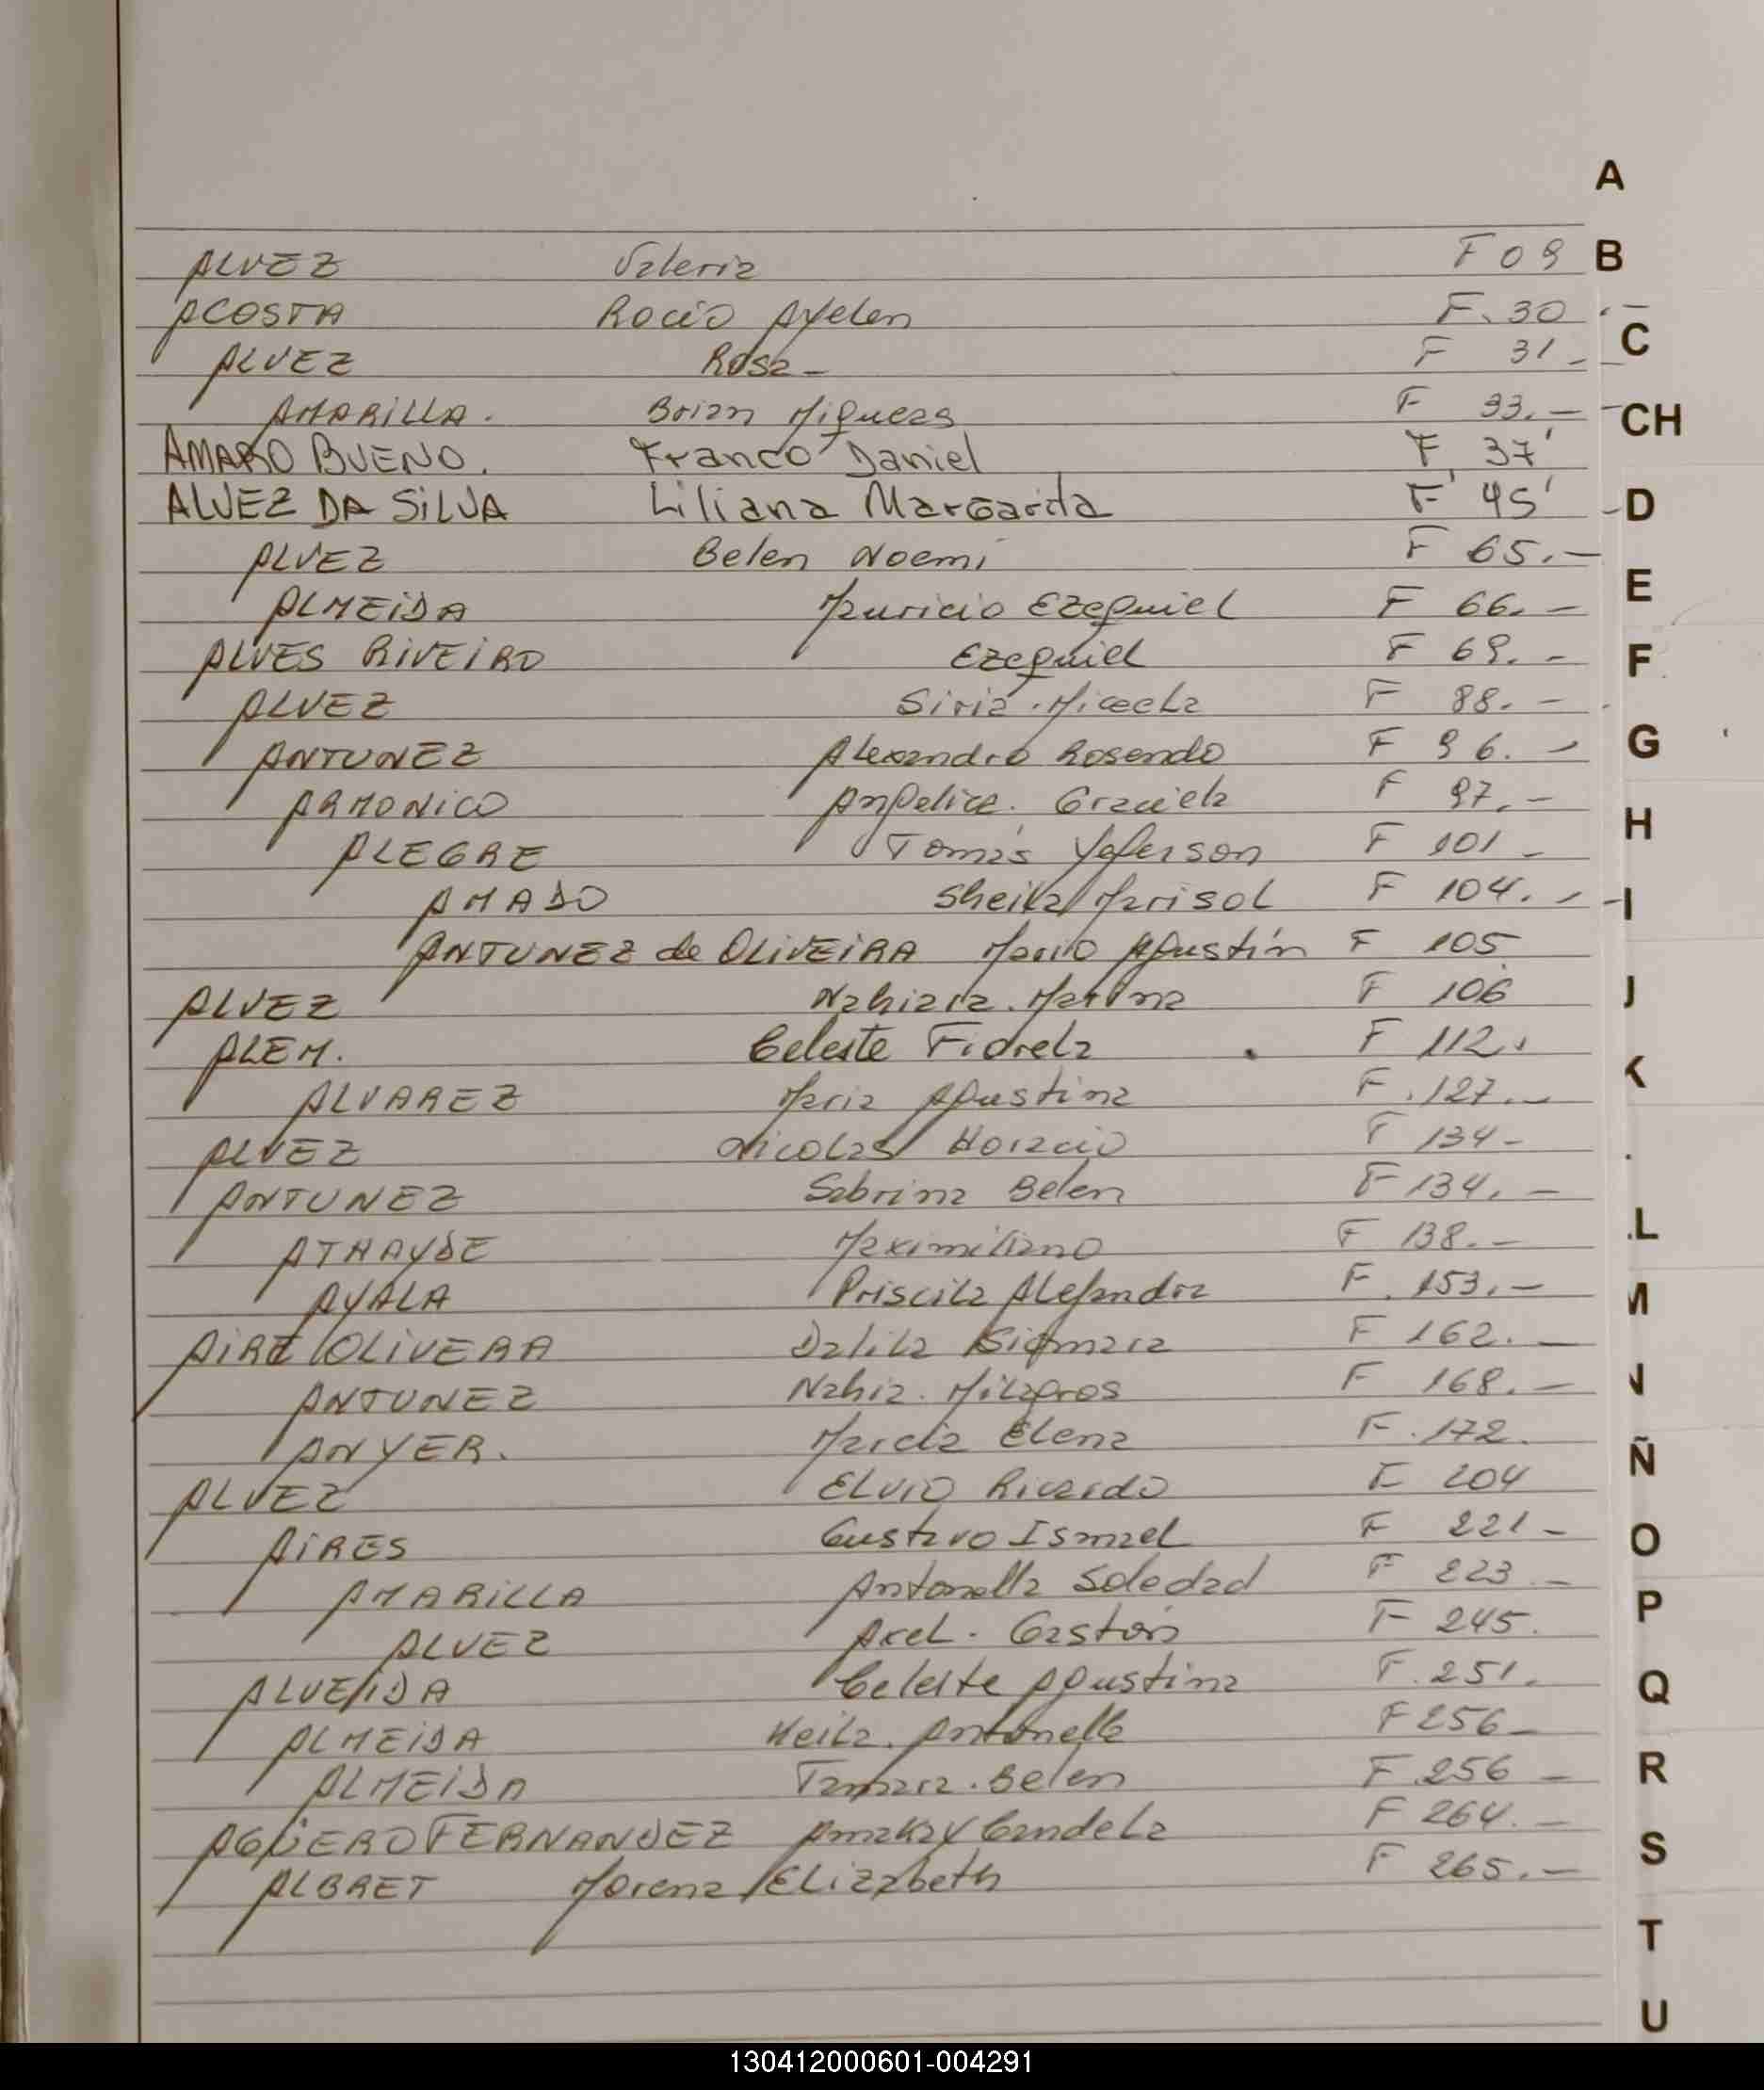 A
ALVEZ Valeria F 09
B
ACOSTA Rocio Ayelen F. 30
ALVEZ Rosa - F 31 -
C
AMARILLA. Brian F 33. -
CH
AMARO BUENO. Franco Daniel F 37
ALVEZ DA SILVA Liliana Margarita F 45
D
ALVEZ Belen Noemi F 65. -
E
ALMEIDA Mauricio Ezequiel F 66. -
ALVES RIVEIRO Ezequiel F 69. -
F
ALVEZ Siria. Micaela F 88. -
G
ANTUNEZ Alexandro Rosendo F 96. -
ARMONICO Angelica. Graciela F 97. -
H
ALEGRE Tomás Yeferson F 101 -
AMADO Sheila Marisol F 104. -
I
ANTUNEZ de OLIVEIRA Mario Agustín F 105
J
ALVEZ Nahiara. Marina F 106
ALEM. Celeste Fiorela F 112.
K
ALVAREZ Maria Agustina F. 127. -
ALVEZ Nicolas Horacio F 134 -
ANTUNEZ Sabrina Belen F 134. -
L
ATHAYDE Maximiliano F 138. -
AYALA Priscila Alejandra F. 153. -
M
AIRE OLIVERA Dalila Siomara F 162. -
N
ANTUNEZ Nahia. Milagros F 168. -
ANYER. Marcia Elena F. 172.
Ñ
ALVEZ Elvio Ricardo F 204
AIRES Gustavo Ismael F 221 -
O
AMARILLA Antonella Soledad F 223 -
P
ALVEZ Axel. Gastón F 245.
ALVEIDA Celeste Agustina F. 251.
Q
ALMEIDA Keila. Antonella F 256 -
ALMEIDA Tamara. Belen F. 256 -
R
AGÜERO FERNANDEZ Candela F 264. -
S
ALBRET Morena Elizabeth F 265. -
T
U
130412000601-004291